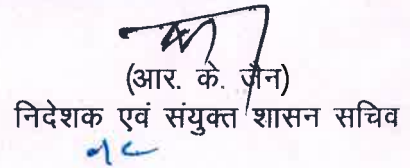 (आर. के. जैन)
निदेशक एवं संयुक्त शासन सचिव